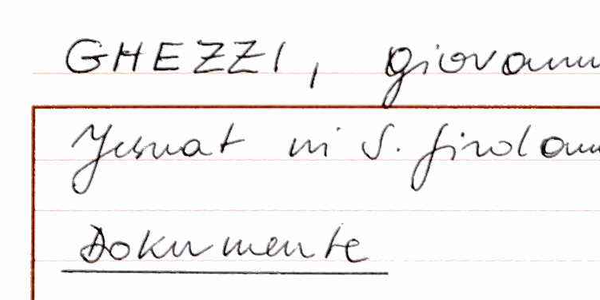 GHEZZI, Giovann
Jesuat in S. Girolam
Dokumente